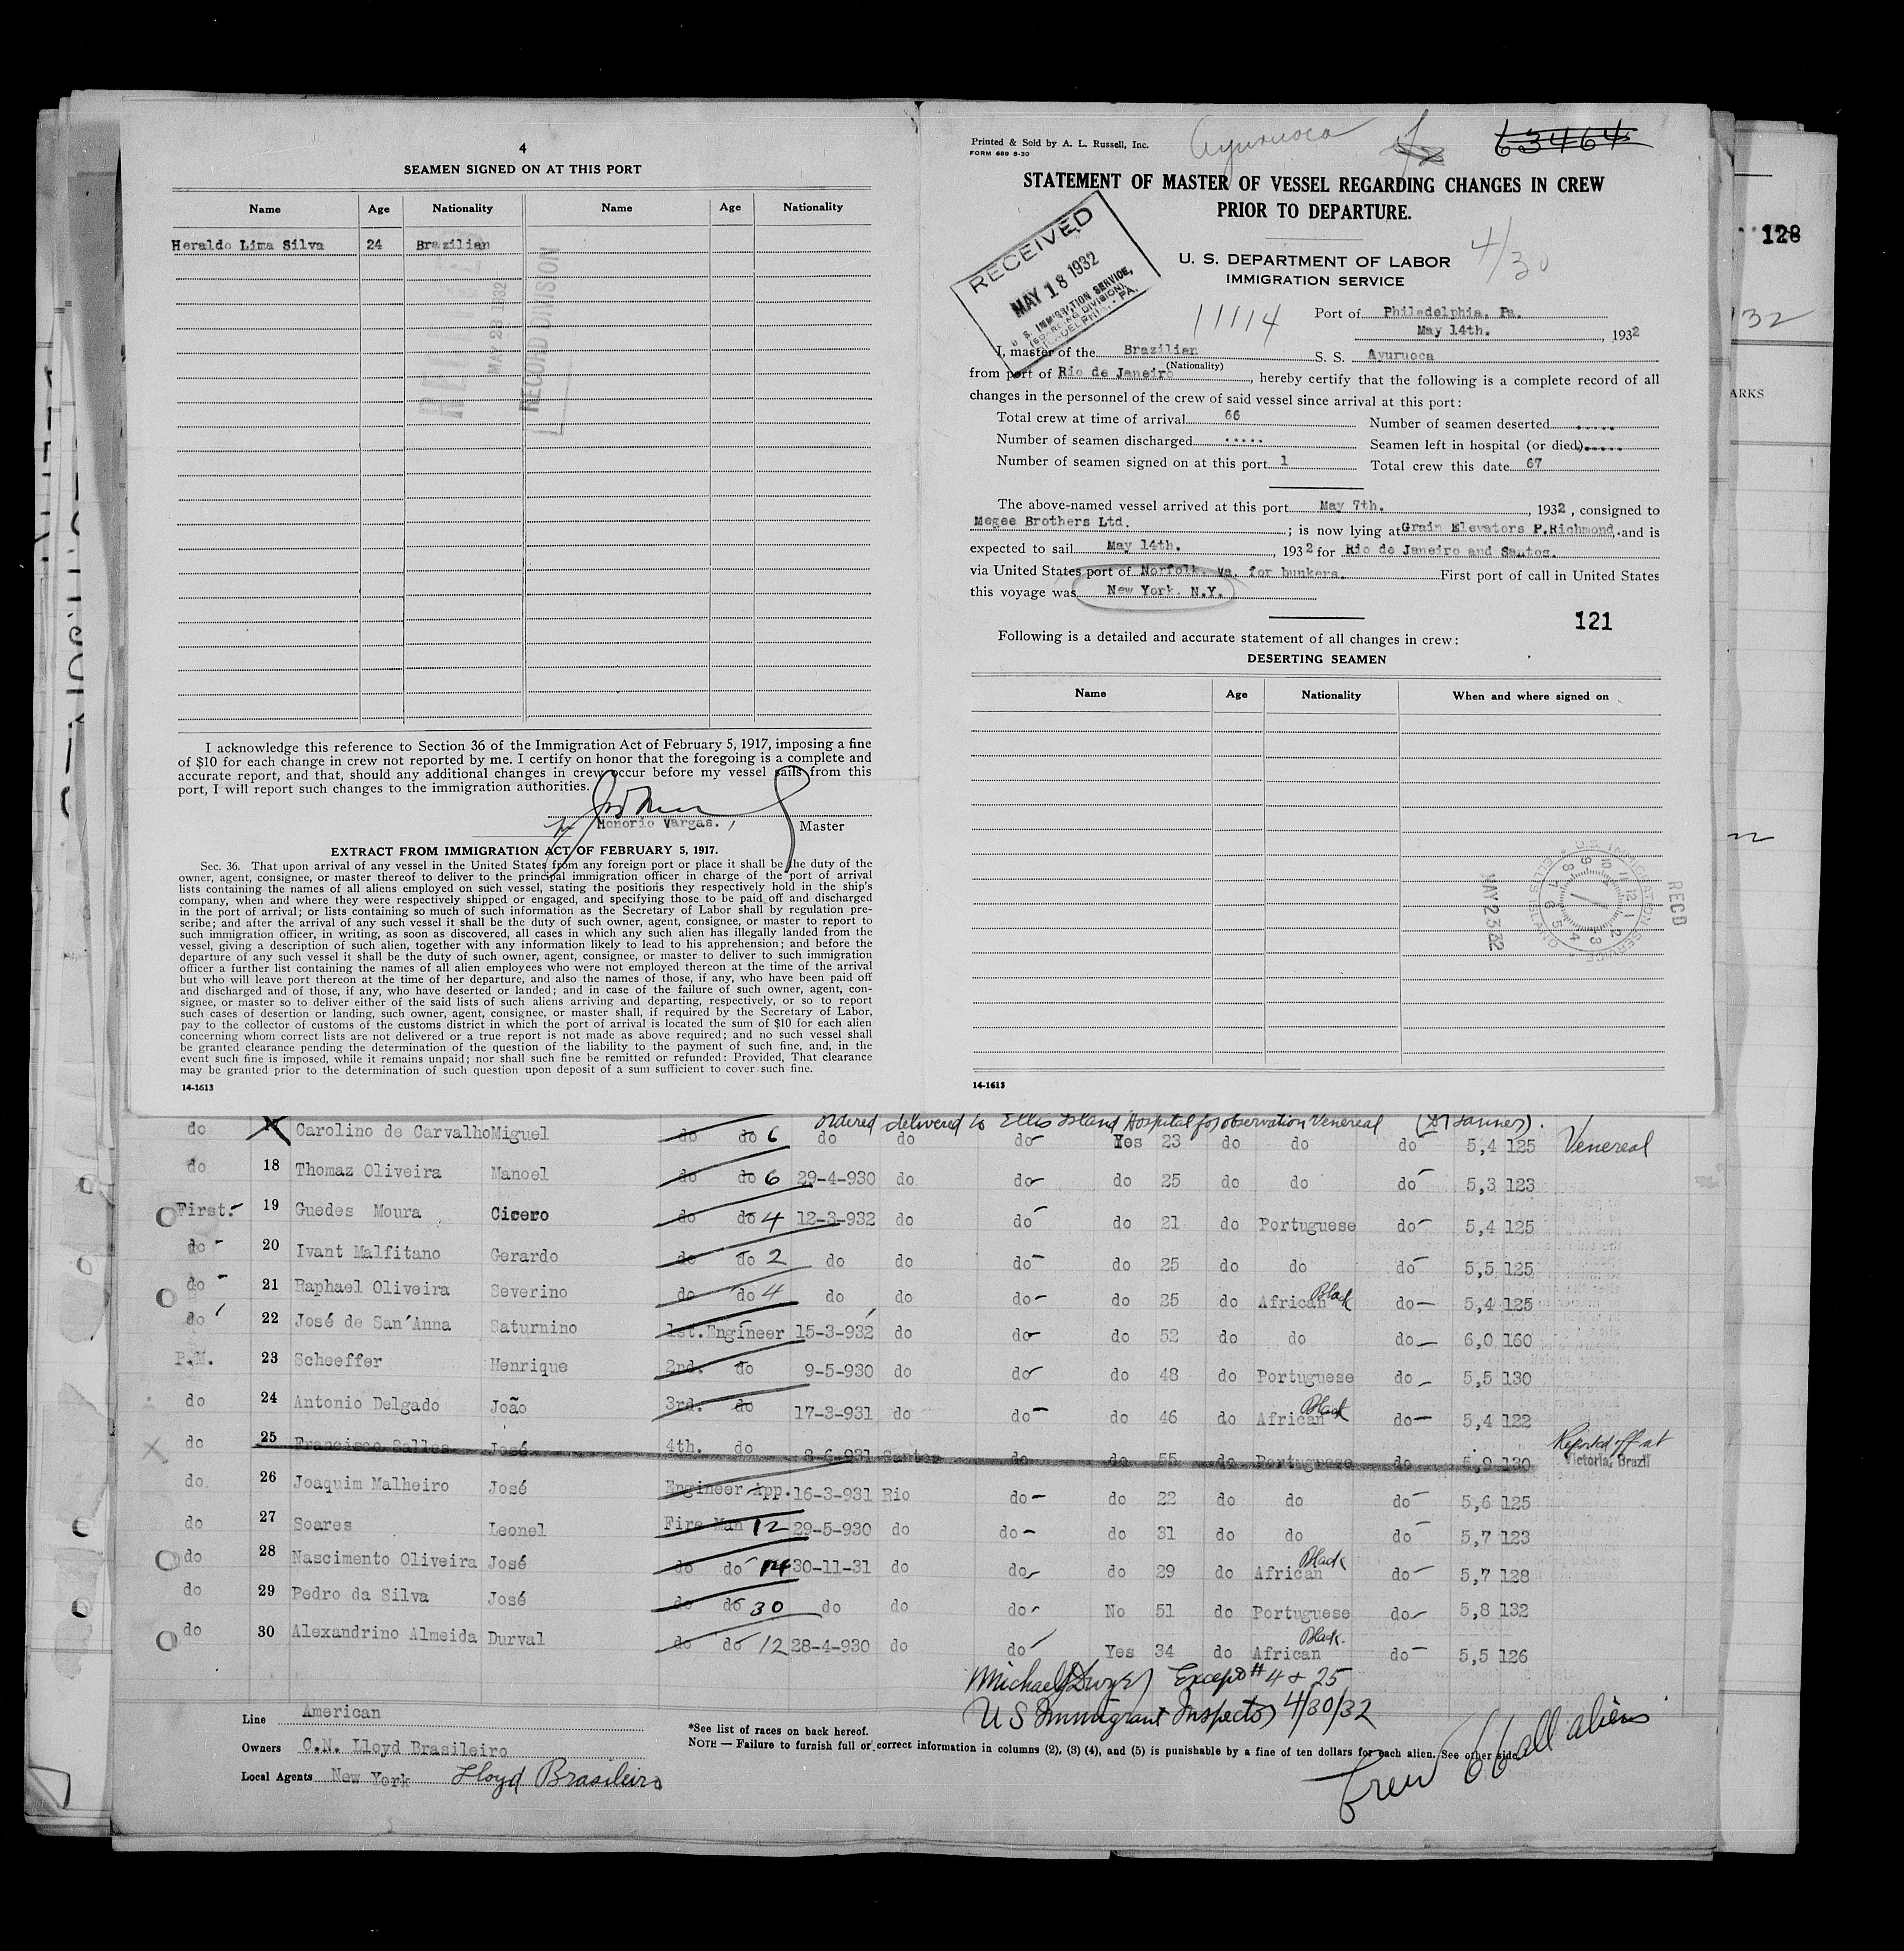 4
SEAMEN SIGNED ON AT THIS PORT
Name Age Nationality Name Age Nationality
Heraldo Lima Silva 24 Brazilian
MAY 23 1932
RECORD DIVISION
I acknowledge this reference to Section 36 of the Immigration Act of February 5, 1917, imposing a fine
of $10 for each change in crew not reported by me. I certify on honor that the foregoing is a complete and
accurate report, and that, should any additional changes in crew occur before my vessel sails from this
port, I will report such changes to the immigration authorities.
Honorio Vargas. Master
EXTRACT FROM IMMIGRATION ACT OF FEBRUARY 5, 1917.
Sec. 36. That upon arrival of any vessel in the United States from any foreign port or place it shall be the duty of the
owner, agent, consignee, or master thereof to deliver to the principal immigration officer in charge of the port of arrival
lists containing the names of all aliens employed on such vessel, stating the positions they respectively hold in the ship's
company, when and where they were respectively shipped or engaged, and specifying those to be paid off and discharged
in the port of arrival; or lists containing so much of such information as the Secretary of Labor shall by regulation pre-
scribe; and after the arrival of any such vessel it shall be the duty of such owner, agent, consignee, or master to report to
such immigration officer, in writing, as soon as discovered, all cases in which any such alien has illegally landed from the
vessel, giving a description of such alien, together with any information likely to lead to his apprehension; and before the
departure of any such vessel it shall be the duty of such owner, agent, consignee, or master to deliver to such immigration
officer a further list containing the names of all alien employees who were not employed thereon at the time of the arrival
but who will leave port thereon at the time of her departure, and also the names of those, if any, who have been paid off
and discharged and of those, if any, who have deserted or landed; and in case of the failure of such owner, agent, con-
signee, or master so to deliver either of the said lists of such aliens arriving and departing, respectively, or so to report
such cases of desertion or landing, such owner, agent, consignee, or master shall, if required by the Secretary of Labor,
pay to the collector of customs of the customs district in which the port of arrival is located the sum of $10 for each alien
concerning whom correct lists are not delivered or a true report is not made as above required; and no such vessel shall
be granted clearance pending the determination of the question of the liability to the payment of such fine, and, in the
event such fine is imposed, while it remains unpaid; nor shall such fine be remitted or refunded: Provided, That clearance
may be granted prior to the determination of such question upon deposit of a sum sufficient to cover such fine.
14-1613
Printed & Sold by A. L. Russell, Inc.
FORM 689 6-30
Ayuruoca
63464
STATEMENT OF MASTER OF VESSEL REGARDING CHANGES IN CREW
PRIOR TO DEPARTURE.
RECEIVED
MAY 18 1932
U. S. IMMIGRATION SERVICE,
(BOARDING DIVISION)
PHILADELPHIA, PA.
U. S. DEPARTMENT OF LABOR
IMMIGRATION SERVICE
4/30
11114
Port of Philadelphia, Pa.
May 14th. , 1932
I, master of the Brazilian S. S. Ayuruoca
(Nationality)
from port of Rio de Janeiro , hereby certify that the following is a complete record of all
changes in the personnel of the crew of said vessel since arrival at this port:
Total crew at time of arrival 66 Number of seamen deserted .....
Number of seamen discharged ..... Seamen left in hospital (or died) .....
Number of seamen signed on at this port 1 Total crew this date 67
The above-named vessel arrived at this port May 7th. , 1932 , consigned to
Megee Brothers Ltd. ; is now lying at Grain Elevators P.Richmond, and is
expected to sail May 14th. , 1932 for Rio de Janeiro and Santos.
via United States port of Norfolk. Va. for bunkers. First port of call in United States
this voyage was New York. N.Y.
121
Following is a detailed and accurate statement of all changes in crew:
DESERTING SEAMEN
Name Age Nationality When and where signed on
U.S. IMMIGRATION SERVICE ELLIS ISLAND
MAY 23 32
RECD
14-1613
128
32
ARKS
ordered delivered to Ellis Island Hospital for observation Venereal
do Carolino de Carvalho Miguel do do 6 do do do Yes 23 do do do 5,4 125 Venereal
do 18 Thomaz Oliveira Manoel do do 6 29-4-930 do do do 25 do do do 5,3 123
First. 19 Guedes Moura Cicero do do 4 12-3-932 do do do 21 do Portuguese do 5,4 125
do 20 Ivant Malfitano Gerardo do do 2 do do do do 25 do do do 5,5 125
do 21 Raphael Oliveira Severino do do 4 do do do do 25 do African Black do 5,4 125
do 22 José de San'Anna Saturnino 1st.Engineer 15-3-932 do do do 52 do do do 6,0 160
P.M. 23 Scheeffer Henrique 2nd. do 9-5-930 do do do 48 do Portuguese do 5,5 130
do 24 Antonio Delgado João 3rd. do 17-3-931 do do do 46 do African Black do 5,4 122
do 25 Francisco Salles José 4th. do 8-6-931 Santos do do 55 do Portuguese do 5,9 130 Reported off at Victoria, Brazil
do 26 Joaquim Malheiro José Engineer App. 16-3-931 Rio do do 22 do do do 5,6 125
do 27 Soares Leonel Fire Man 12 29-5-930 do do do 31 do do do 5,7 123
do 28 Nascimento Oliveira José do do 14 30-11-31 do do do 29 do African Black do 5,7 128
do 29 Pedro da Silva José do do 30 do do do No 51 do Portuguese do 5,8 132
do 30 Alexandrino Almeida Durval do do 12 28-4-930 do do Yes 34 do African Black. do 5,5 126
Michael Dwyer Except # 4 + 25
U S Immigrant Inspector 4/30/32
Crew 66 all aliens
Line American
Owners C.N. Lloyd Brasileiro
Local Agents New York Lloyd Brasileiro
*See list of races on back hereof.
NOTE — Failure to furnish full or correct information in columns (2), (3) (4), and (5) is punishable by a fine of ten dollars for each alien. See other side.